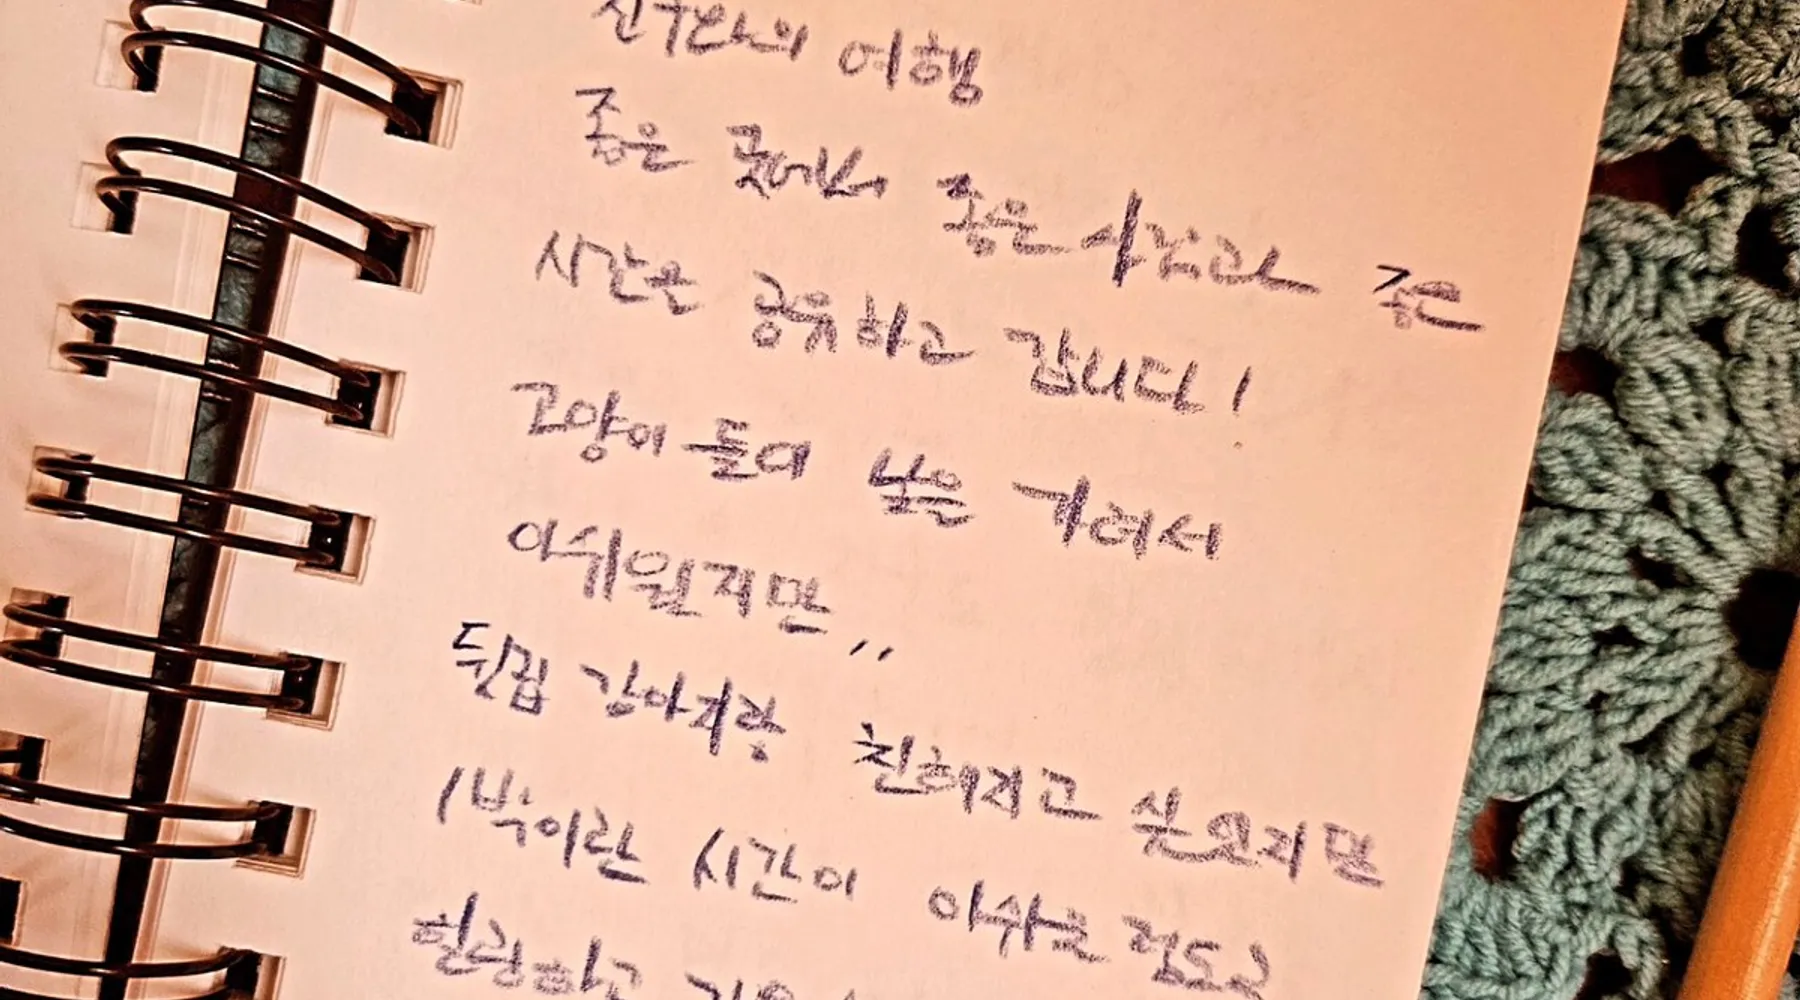 친구와의 여행
좋은 곳에서 좋은 사람과 좋은
시간을 공유하고 갑니다!
고양이들이 낯을 가려서
아쉬웠지만,,
뒷집 강아지랑 친해지고 싶었지만
1박이란 시간이 아쉬울 정도로
힐링하고